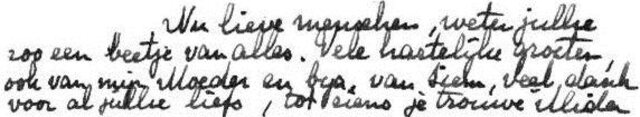 Nu lieve menschen, weten jullie
zoo een beetje van alles. Vele hartelijke groeten
ook van mijn Moeder en bya. van Siem, veel dank
voor al jullie liefs, tot siens je trouwe Mider